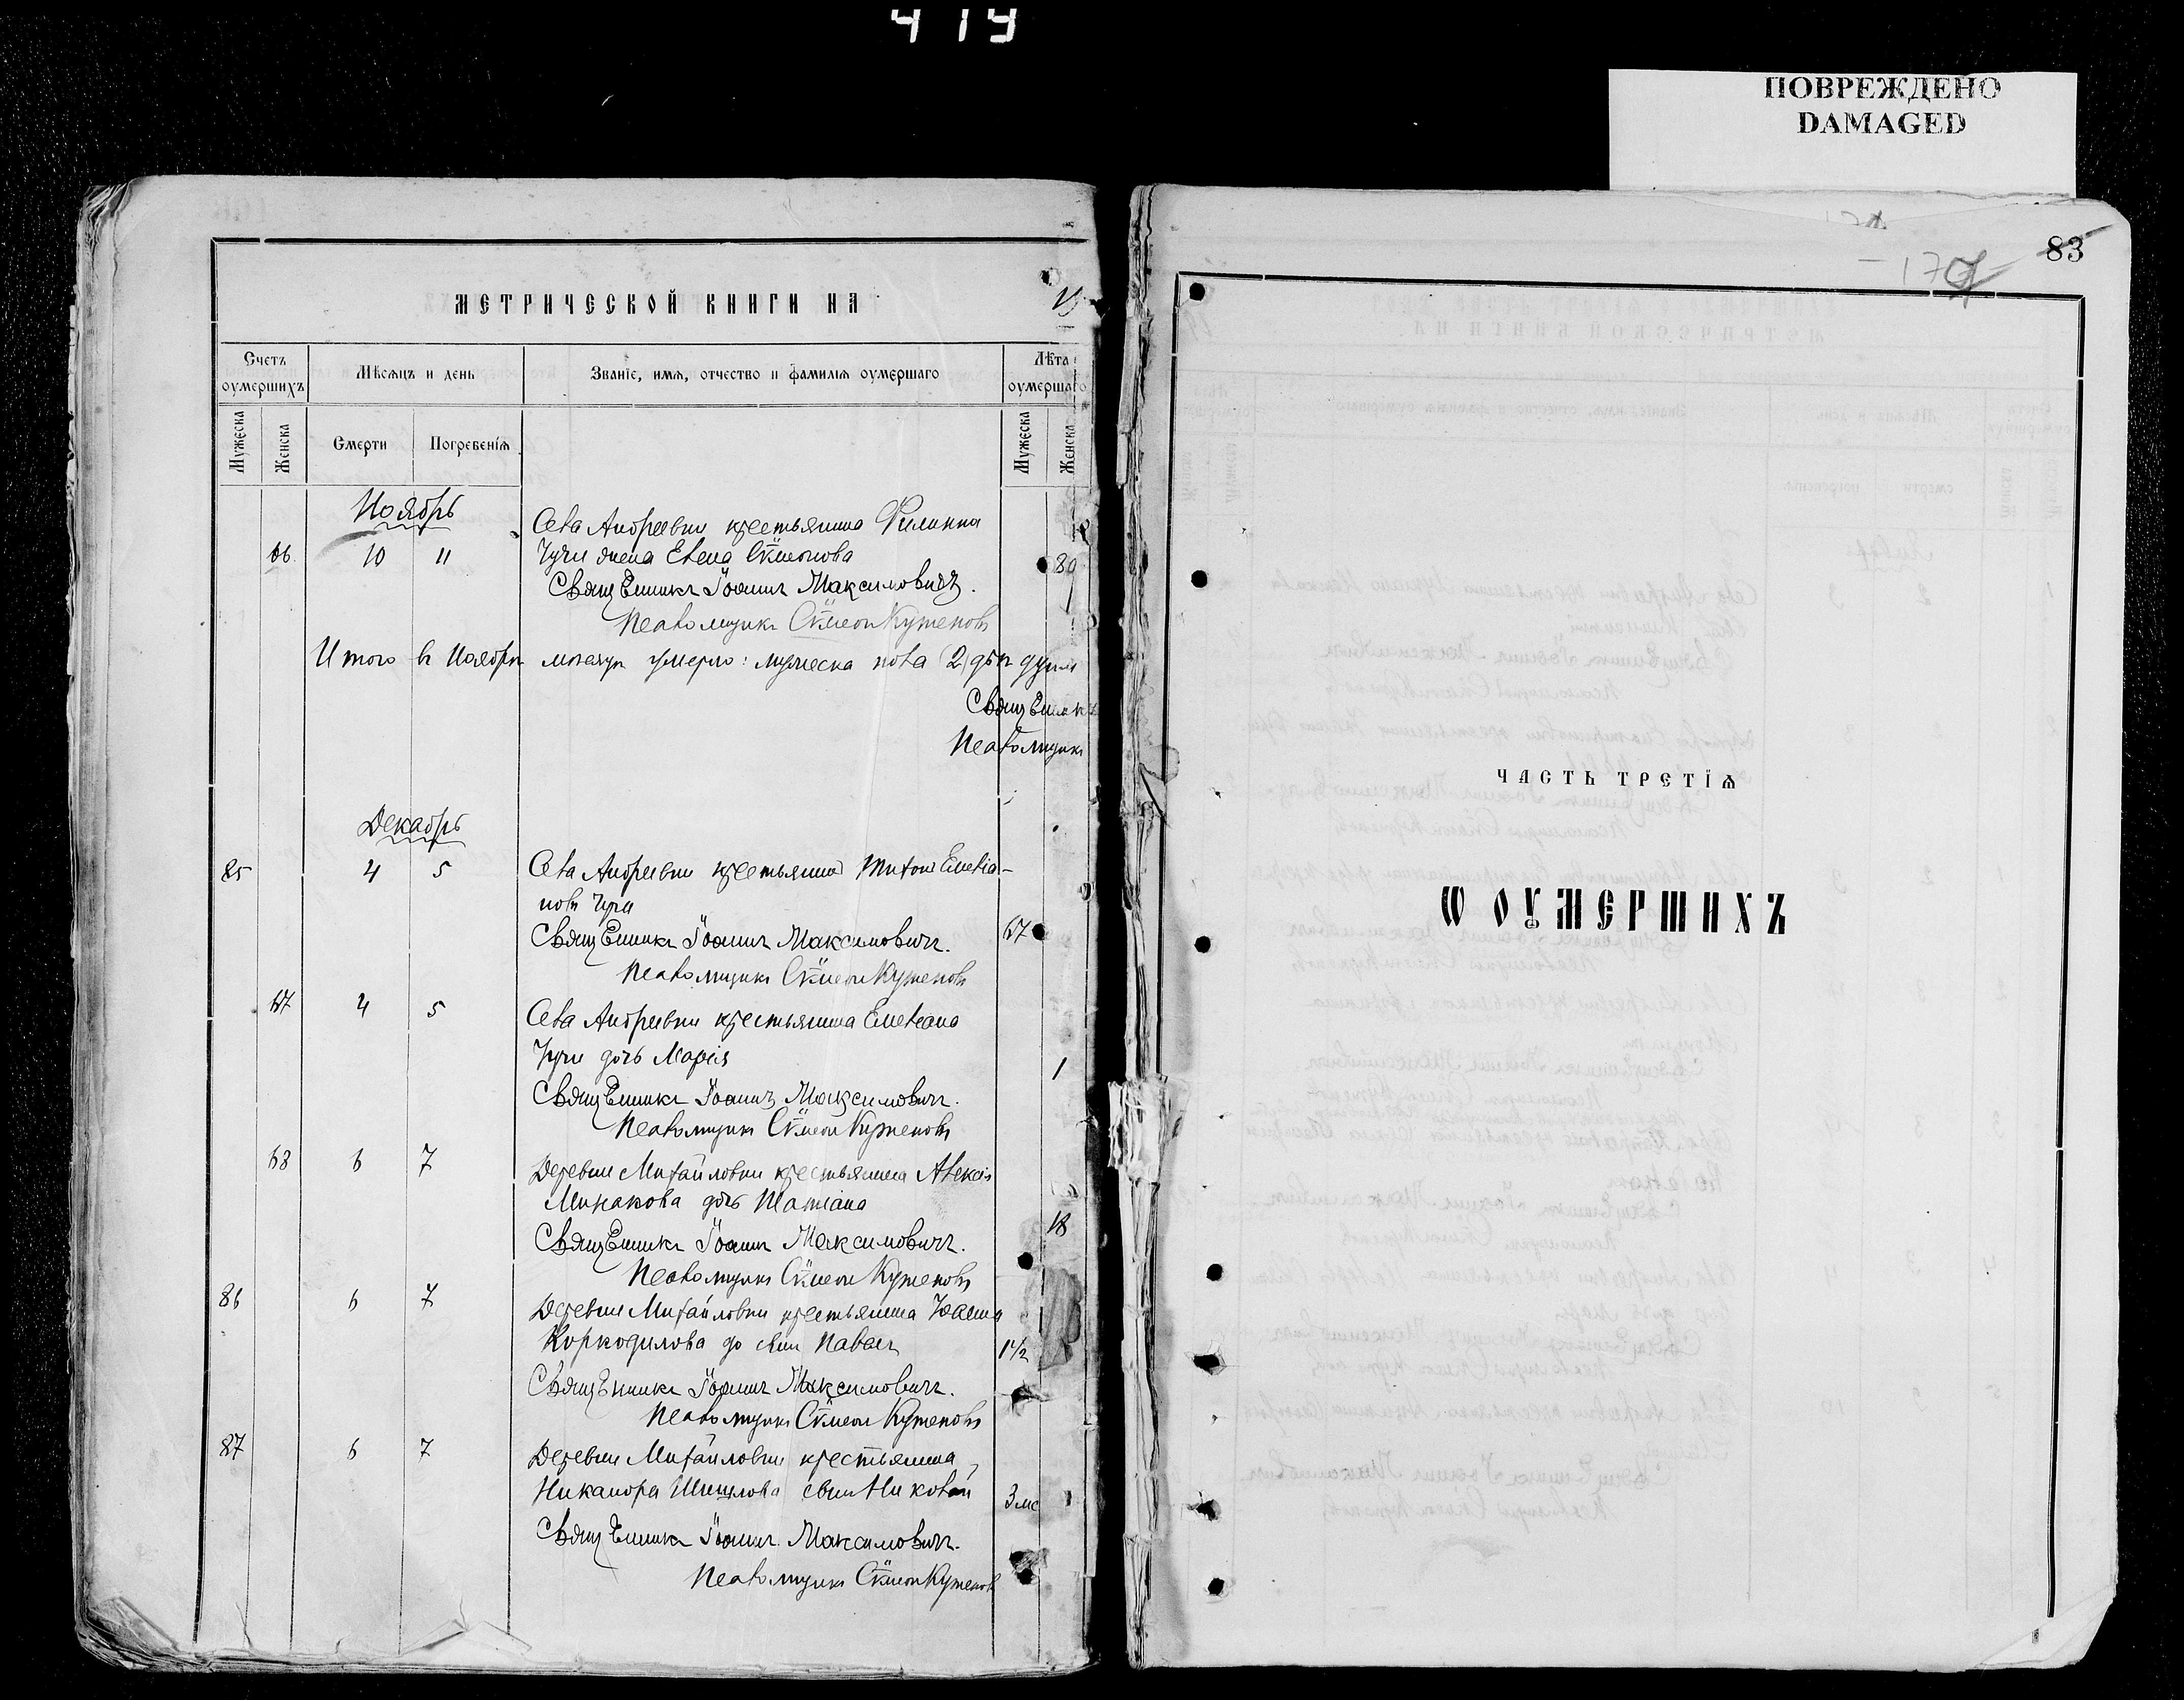 419
ПОВРЕЖДЕНО
DAMAGED
83
170
МЕТРИЧЕСКОЙ КНИГИ НА
19
Счетъ оумершихъ
Мѣсяцъ и день
Званїе, имѧ, отчество и фамилїѧ оумершаго
Лѣта оумершаго
Мужеска
Женска
Смерти
Погребенїѧ
Мужеска
Женска
Ноябрь
Села Андреевки крестьянина Филиппа
66. 10 11 жена Елена Сѷмеонова 80
Священникъ Іоаннъ Максимовичъ.
Псаломщикъ Сѷмеон Кутеповъ
Итого въ Ноябрѣ месяцѣ умерло: мужеска пола (2) двѣ души
Священникъ
Псаломщикъ
Декабрь
85 4 5 Села Андреевки крестьянинъ Емелиа-
новъ
Священникъ Іоаннъ Максимовичъ. 67
Псаломщикъ Сѷмеон Кутеповъ
67 4 5 Села Андреевки крестьянина Емелеана
дочь Марія 1
Священникъ Іоаннъ Максимовичъ.
Псаломщикъ Сѷмеон Кутеповъ
68 6 7 Деревни Михайловки крестьянина Алексія
Минакова дочь Татіана 18
Священникъ Іоаннъ Максимовичъ.
Псаломщикъ Сѷмеон Кутеповъ
86 6 7 Деревни Михайловки крестьянина Іоанна
Коркодилова сынъ Павелъ 1 1/2
Священникъ Іоаннъ Максимовичъ.
Псаломщикъ Сѷмеон Кутеповъ
87 6 7 Деревни Михайловки крестьянина
Никанора сынъ Николай 3 мс
Священникъ Іоаннъ Максимовичъ.
Псаломщикъ Сѷмеон Кутеповъ
ЧАСТЬ ТРЕТЇѦ
Ѡ ОУМЕРШИХЪ